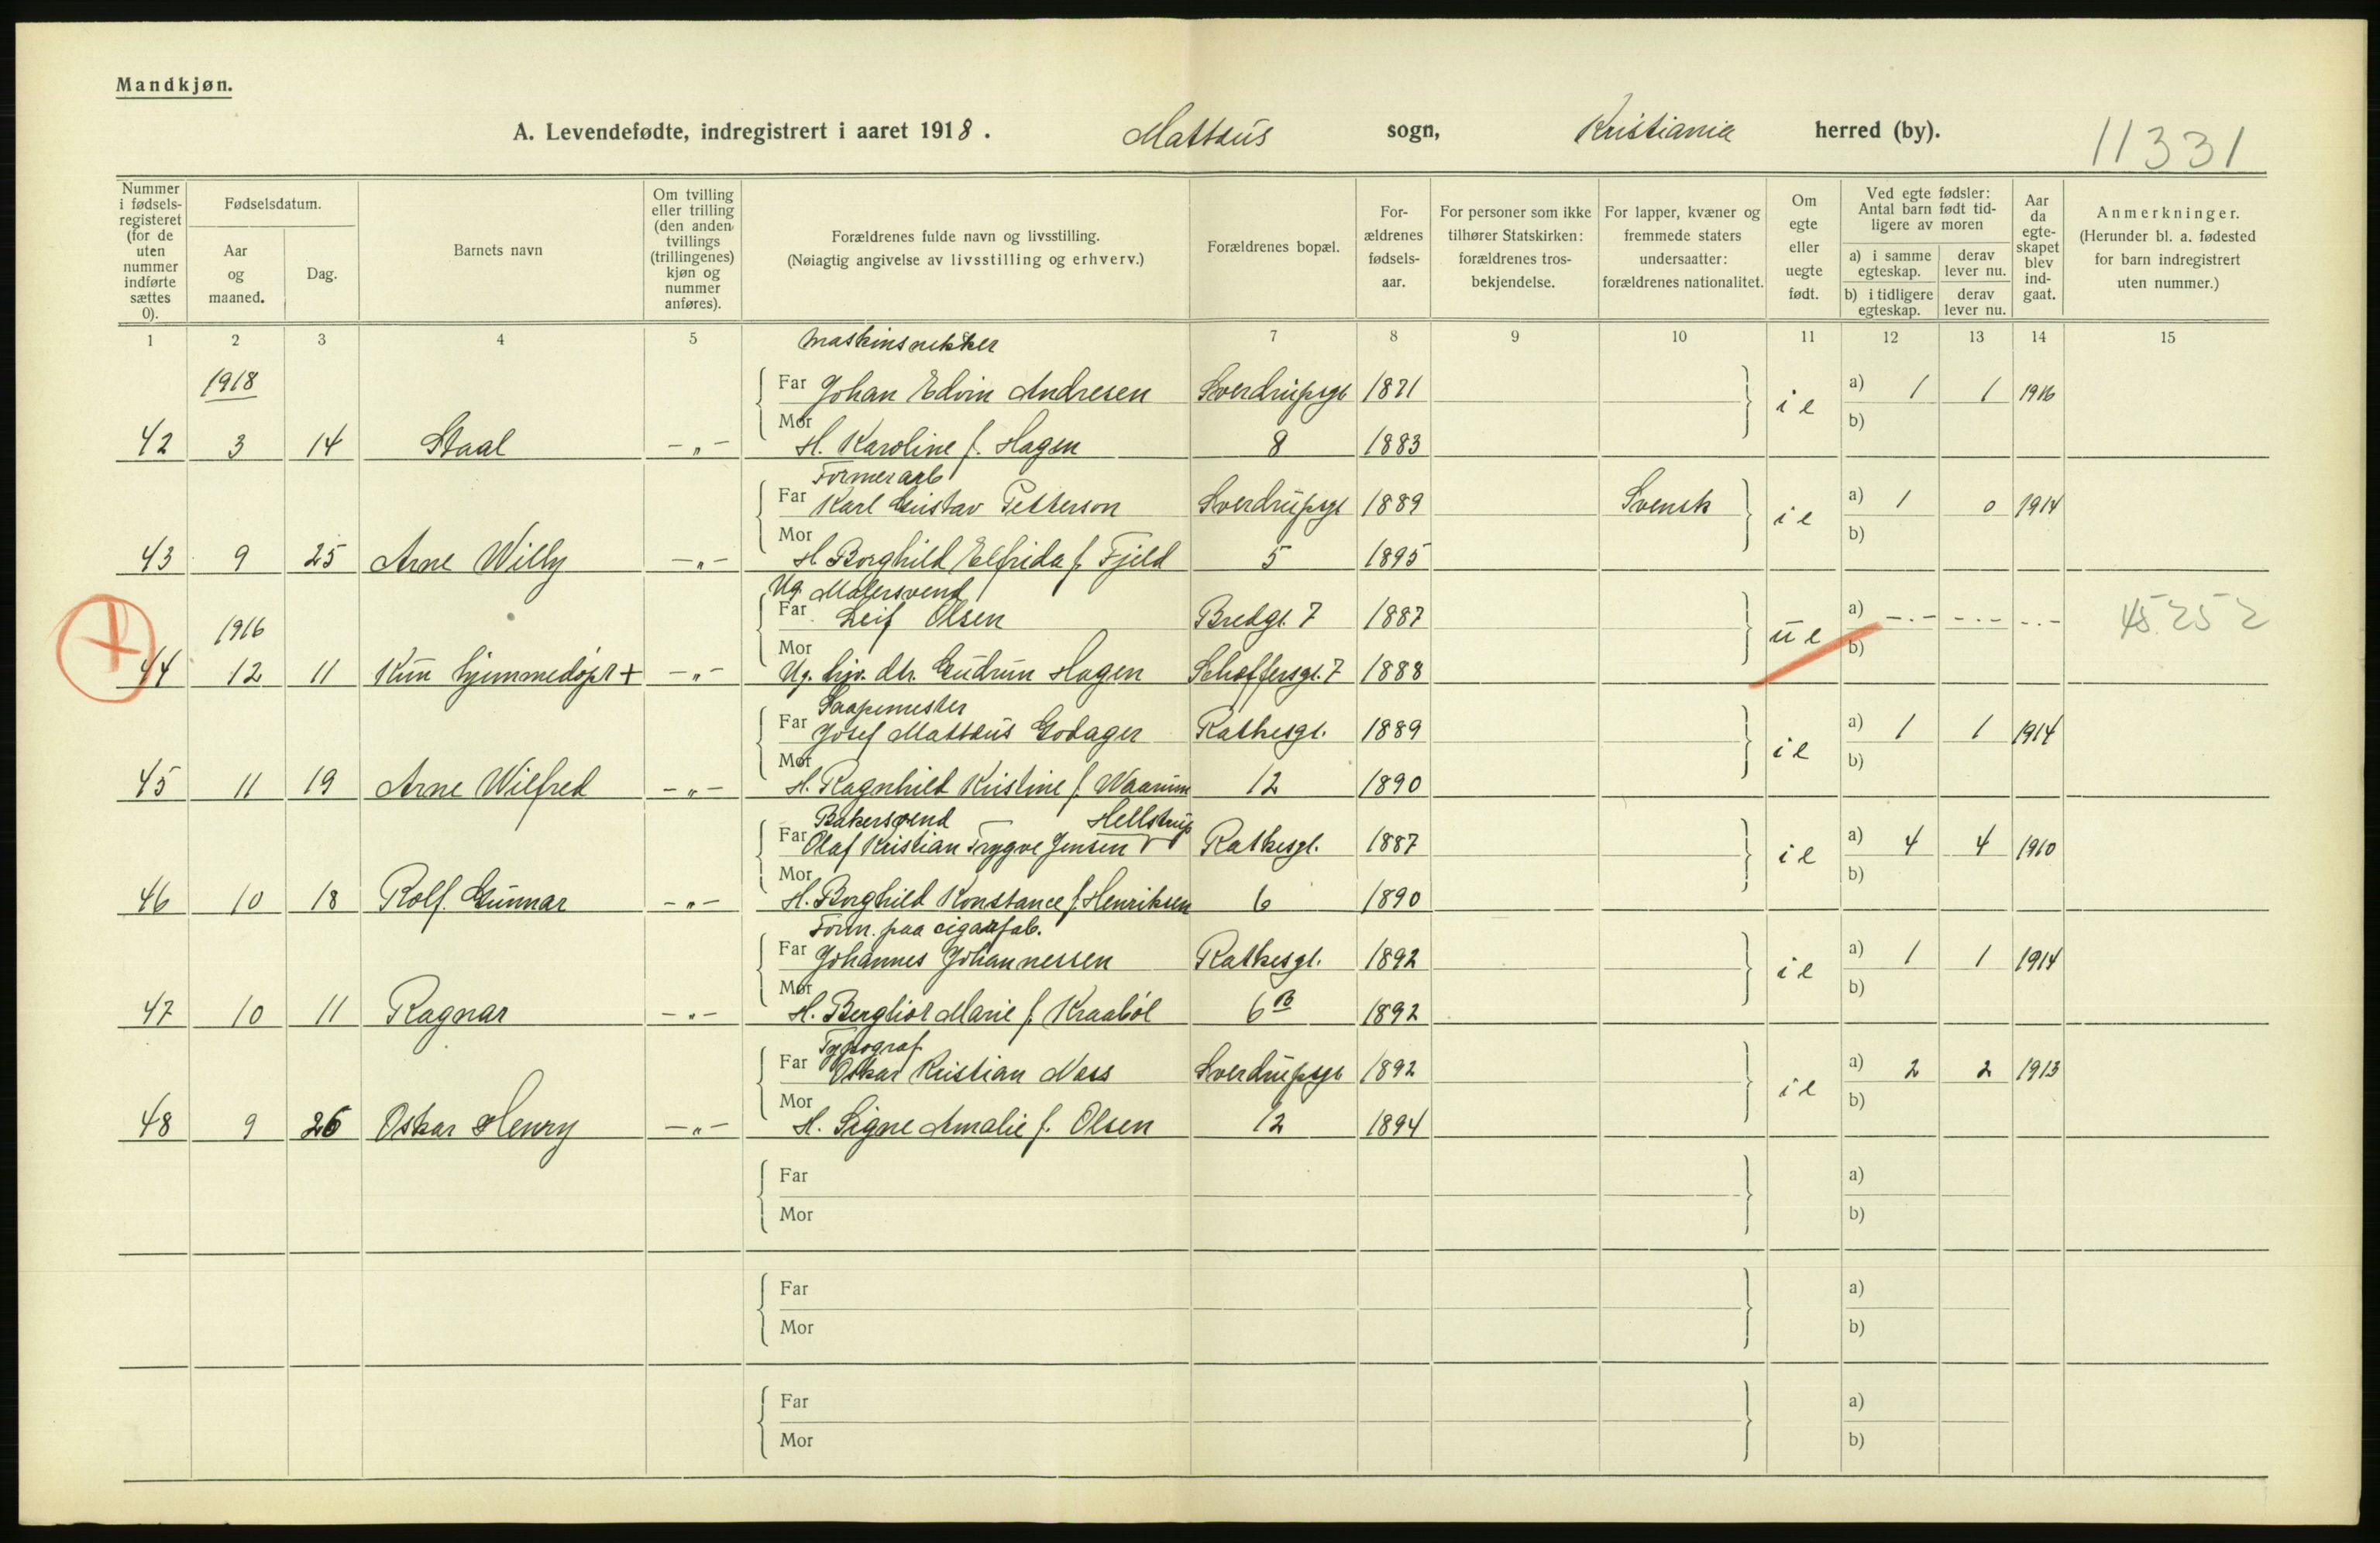 Mandkjøn.
A. Levendefødte, indregistrert i aaret 1918. Mattæus sogn, Kristiania herred (by). 11331
Nummer i fødsels-registeret (for de uten nummer indførte sættes 0).
Fødselsdatum.
Aar og maaned.
Dag.
Barnets navn
Om tvilling eller trilling (den anden tvillings (trillingenes) kjøn og nummer anføres).
Forældrenes fulde navn og livsstilling.
(Nøiagtig angivelse av livsstilling og erhverv.)
Forældrenes bopæl.
For-ældrenes fødsels-aar.
For personer som ikke tilhører Statskirken: forældrenes tros-bekjendelse.
For lapper, kvæner og fremmede staters undersaatter: forældrenes nationalitet.
Om egte eller uegte født.
Ved egte fødsler: Antal barn født tid-ligere av moren
a) i samme egteskap.
derav lever nu.
b) i tidligere egteskap.
derav lever nu.
Aar da egte-skapet blev ind-gaat.
Anmerkninger.
(Herunder bl. a. fødested for barn indregistrert uten nummer.)
1 2 3 4 5 7 8 9 10 11 12 13 14 15
Maskinsnekker
1918
Far Johan Edvin Andresen Sverdrupsgt 1871 i e a) 1 1 1916
Mor b)
42 3 14 Staal -"- H. Karoline f. Hagen 8 1883
Formerarb
Far Karl Gustav Petterson Sverdrupsgt 1889 Svensk i e a) 1 0 1914
Mor b)
43 9 25 Arne Willy -"- H. Borghild Elfrida f. Fjeld 5 1895
Ug. Malersvend
1916
Far Leif Olsen Bredgt. 7 1887 u e a) -.- -.- -.- 45252
Mor b)
44 12 11 Kun hjemmedøpt + -"- Ug. hjv. dtr. Gudrun Hagen Schæffersgt. 7 1888
Saapemester
Far Josef Mattæus Godager Rathesgt. 1889 i e a) 1 1 1914
Mor b)
45 11 19 Arne Wilfred -"- H. Ragnhild Kristine f. Waarum 12 1890
Bakersvend Hellstrup
Far Olaf Kristian Trygve Jensen V Rathesgt. 1887 i e a) 4 4 1910
Mor b)
46 10 18 Rolf Gunnar -"- H. Borghild Konstance f. Henriksen 6 1890
Form. paa cigarfab.
Far Johannes Johannessen Rathesgt. 1892 i e a) 1 1 1914
Mor b)
47 10 11 Ragnar -"- H. Bergliot Marie f. Kraabøl 6 B 1892
Typograf
Far Oskar Kristian Næss Sverdrupsgt 1892 i e a) 2 2 1913
Mor b)
48 9 26 Oskar Henry -"- H. Signe Amalie f. Olsen 12 1894
Far a)
Mor b)
Far a)
Mor b)
Far a)
Mor b)